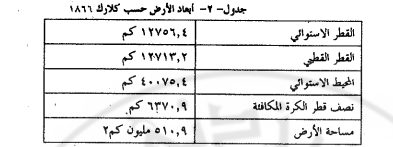 جدول -٢- أبعاد الأرض حسب كلارك ١٨٦٦
القطر الاستوائي ١٢٧٥٦,٤ كم
القطر القطبي ١٢٧١٣,٢ كم
المحيط الاستوائي ٤٠٠٧٥,٤ كم
نصف قطر الكرة المكافئة ٦٣٧٠,٩ كم
مساحة الأرض ٥١٠,٩ مليون كم٢